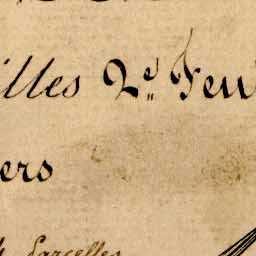 illes 2e Feu
ers
Sarcelles